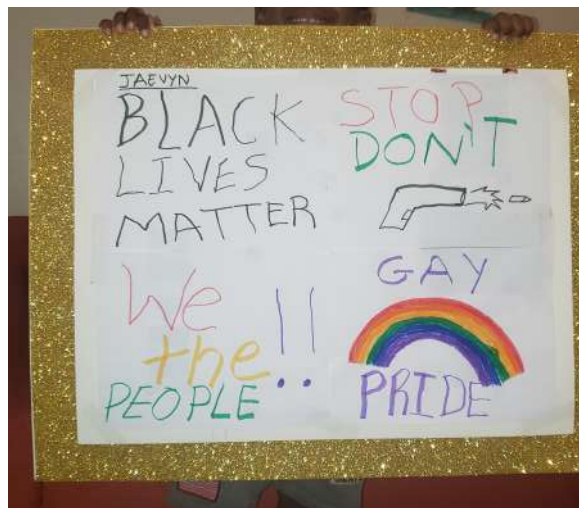 JAEVYN
BLACK
LIVES
MATTER
STOP
DON'T
We
the
PEOPLE !!
GAY
PRIDE